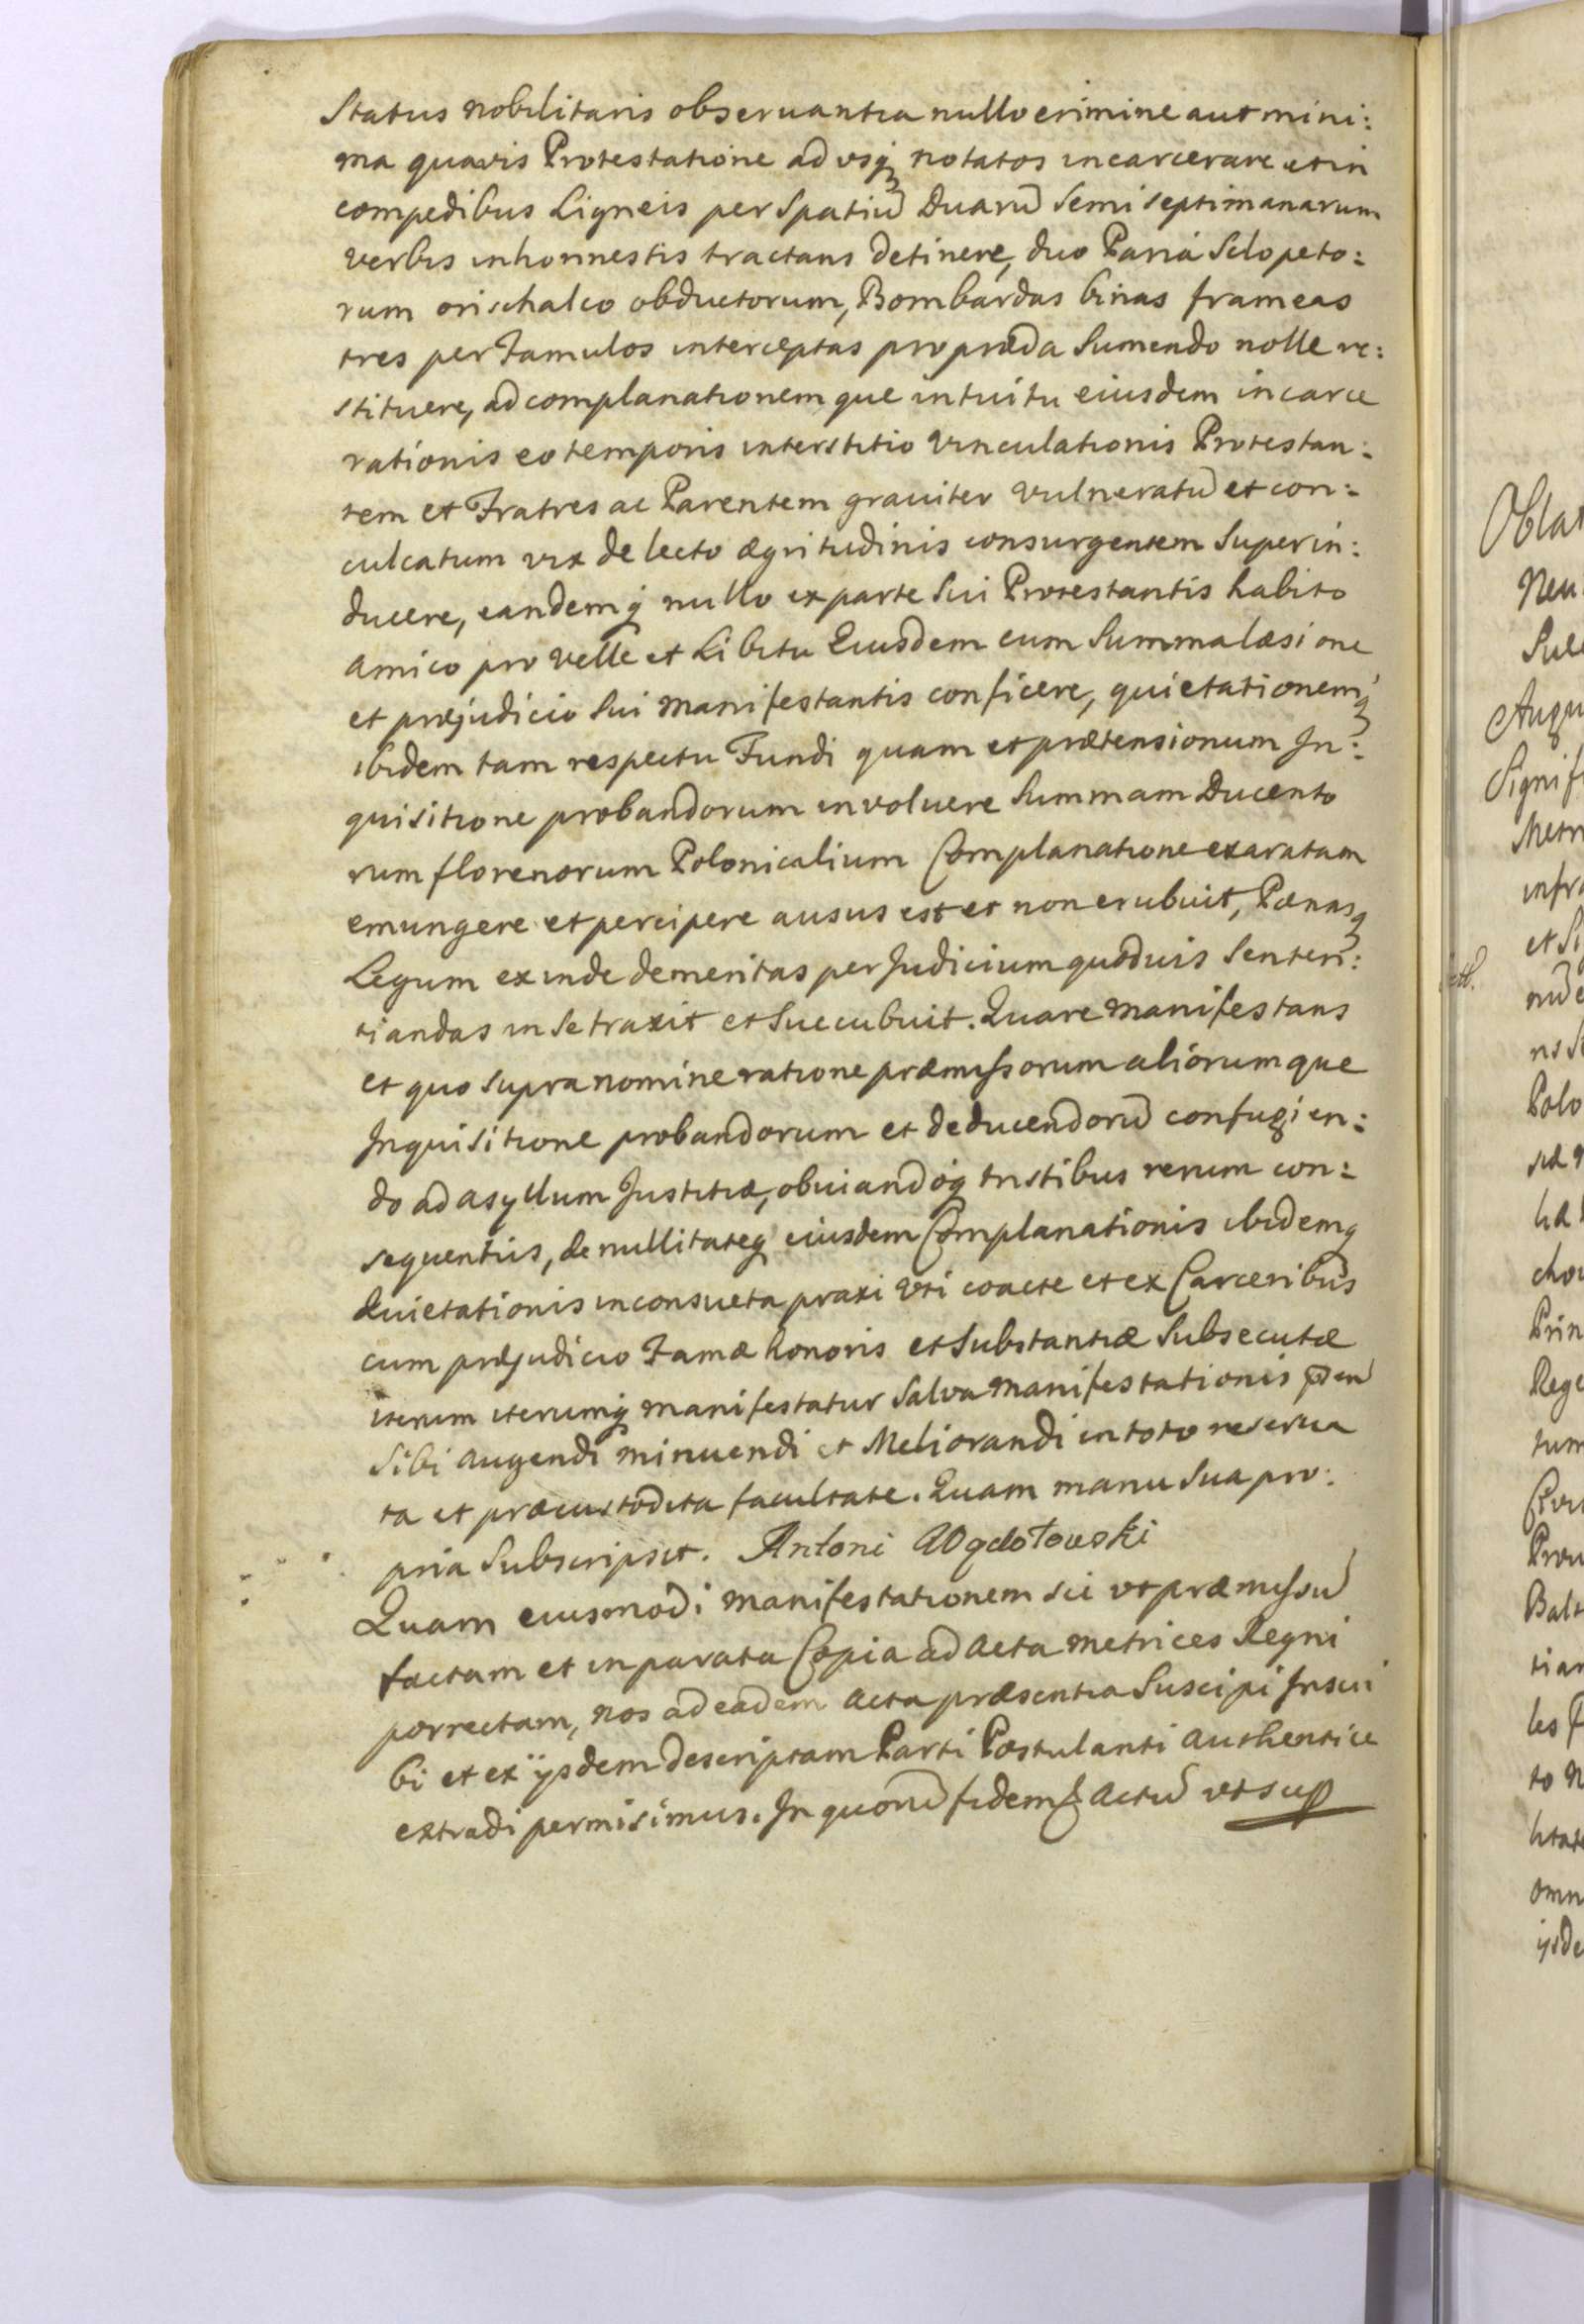 Status nobilitaris obseruantia nullo crimine aut mini:
ma quavis Protestatione ad usq₃ notatos incarcerare et in
compedibus Ligneis per Spatiū Duarū Semi septimanarum
verbis inhonnestis tractans detinere, duo Paria Sclopeto:
rum orischalco obductorum, Bombardas binas frameas
tres per Famulos interceptas pro præda Sumendo nolle re:
stituere, ad complanationem que intuitu eiusdem incarce
rationis eo temporis interstitio Vinculationis Protestan:
tem et Fratres ac Parentem grauiter Vulneratū et con:
culcatum vix de lecto ægritudinis consurgentem Superin:
ducere, eandemq₃ nullo ex parte Sui Protestantis habito
amico pro Velle et Libitu Eiusdem cum Summa læsione
et præjudicio Sui Manifestantis conficere, quietationemq₃
ibidem tam respectu Fundi quam et prætensionum In:
quisitione probandorum inuoluere Summam Ducento
rum florenorum Polonicalium Complanatione exaratam
emungere et percipere ausus est et non erubuit, Pænasq₃
Legum exinde demeritas per Judicium quoduis Senten:
tiandas in Se traxit et Succubuit. Quare Manifestans
et quo supra nomine ratione præmissorum aliorumque
Inquisitione probandorum et deducendorū confugien:
do ad asyllum Justitiæ, obuiandoq₃ tristibus rerum con:
sequentiis, de nullitateq₃ eiusdem Complanationis ibidemq₃
Quietationis inconsueta praxi Vti coacte et ex Carceribus
cum præjudicio Famæ honoris et Substantiæ Subsecutæ
iterum iterumq₃ manifestatur Salva Manifestationis
Sibi augendi minuendi et Meliorandi in toto reserua
ta et præcustodita facultate. Quam manu Sua pro:
pria Subscripsit. Antoni
Quam eiusmodi Manifestationem sic vt præmissū
factam et in parata Copia ad Acta Metrices Regni
porrectam, nos ad eadem Acta præsentia Suscipi Inscri
bi et ex ijsdem descriptam Parti Postulanti authentice
extradi permisimus. In quorū fidem Actū vt sup